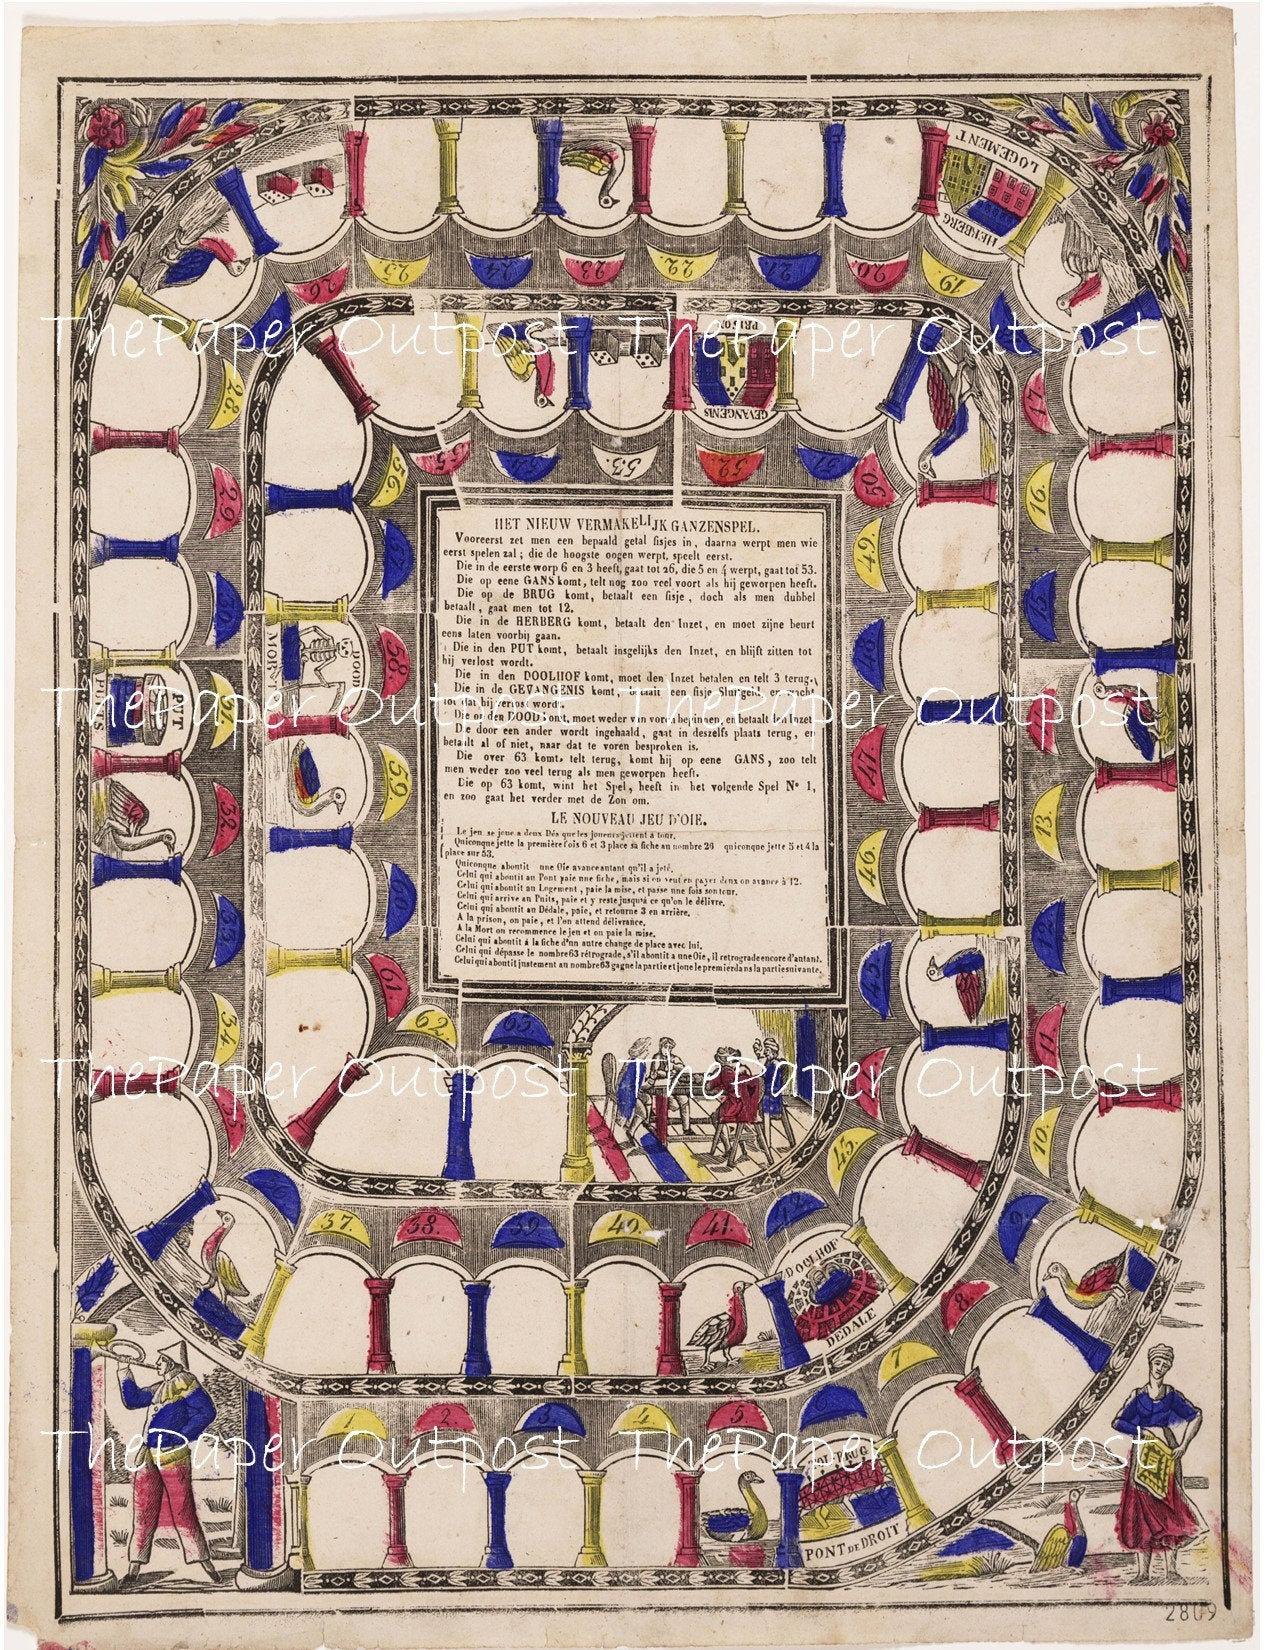 HERBERG
LOGEMENT
26.
25.
24.
23.
22.
21.
20.
19.
28.
29.
30.
31.
32.
33.
34.
35.
36.
37.
38.
39.
40.
41.
42.
43.
45.
46.
47.
48.
49.
50.
51.
52.
53.
54.
55.
56.
57.
58.
59.
60.
61.
62.
63.
17.
16.
15.
13.
12.
11.
10.
9.
8.
7.
6.
5
4
3
2.
1
PRISON
GEVANGENIS
DOOD
MORT
PUT
PUITS
DOOLHOF
DEDALE
BRUG
PONT DE DROIT
HET NIEUW VERMAKELIJK GANZENSPEL.
Vooreerst zet men een bepaald getal fisjes in, daarna werpt men wie
eerst spelen zal; die de hoogste oogen werpt, speelt eerst.
Die in de eerste worp 6 en 3 heeft, gaat tot 26, die 5 en 4 werpt, gaat tot 53.
Die op eene GANS komt, telt nog zoo veel voort als hij geworpen heeft.
Die op de BRUG komt, betaalt een fisje, doch als men dubbel
betaalt, gaat men tot 12.
Die in de HERBERG komt, betaalt den Inzet, en moet zijne beurt
eens laten voorbij gaan.
Die in den PUT komt, betaalt insgelijks den Inzet, en blijft zitten tot
hij verlost wordt.
Die in den DOOLHOF komt, moet den Inzet betalen en telt 3 terug.
Die in de GEVANGENIS komt, betaalt een fisje Sluitgeld, en wacht
tot dat hij verlost wordt.
Die op den DOOD komt, moet weder van voren beginnen, en betaalt den Inzet
Die door een ander wordt ingehaald, gaat in deszelfs plaats terug, en
betaalt al of niet, naar dat te voren besproken is.
Die over 63 komt, telt terug, komt hij op eene GANS, zoo telt
men weder zoo veel terug als men geworpen heeft.
Die op 63 komt, wint het Spel, heeft in het volgende Spel Nº 1,
en zoo gaat het verder met de Zon om.
LE NOUVEAU JEU D'OIE.
Le jeu se joue a deux Dés que les joueurs jettent a tour.
Quiconque jette la première fois 6 et 3 place sa fiche au nombre 26 quiconque jette 5 et 4 la
place sur 53.
Quiconque abontit une Oie avance autant qu'il a jeté.
Celui qui abontit au Pont paie une fiche, mais si on veut en payer deux on avance à 12.
Celui qui abontit au Logement, paie la mise, et passe une fois son tour.
Celui qui arrive au Puits, paie et y reste jusqu'à ce qu'on le délivre.
Celui qui abontit au Dédale, paie, et retourne 3 en arrière.
A la prison, on paie, et l'on attend délivrance.
A la Mort on recommence le jeu et on paie la mise.
Celui qui abontit á la fiche d'un autre change de place avec lui.
Celui qui dépasse le nombre 63 rétrograde, s'il abontit a une Oie, il retrograde encore d'autant.
Celui qui abontit justement au nombre 63 gagne la partie et joue le premier dans la partie suivante.
ThePaper Outpost ThePaper Outpost
ThePaper Outpost ThePaper Outpost
ThePaper Outpost ThePaper Outpost
ThePaper Outpost ThePaper Outpost
2809